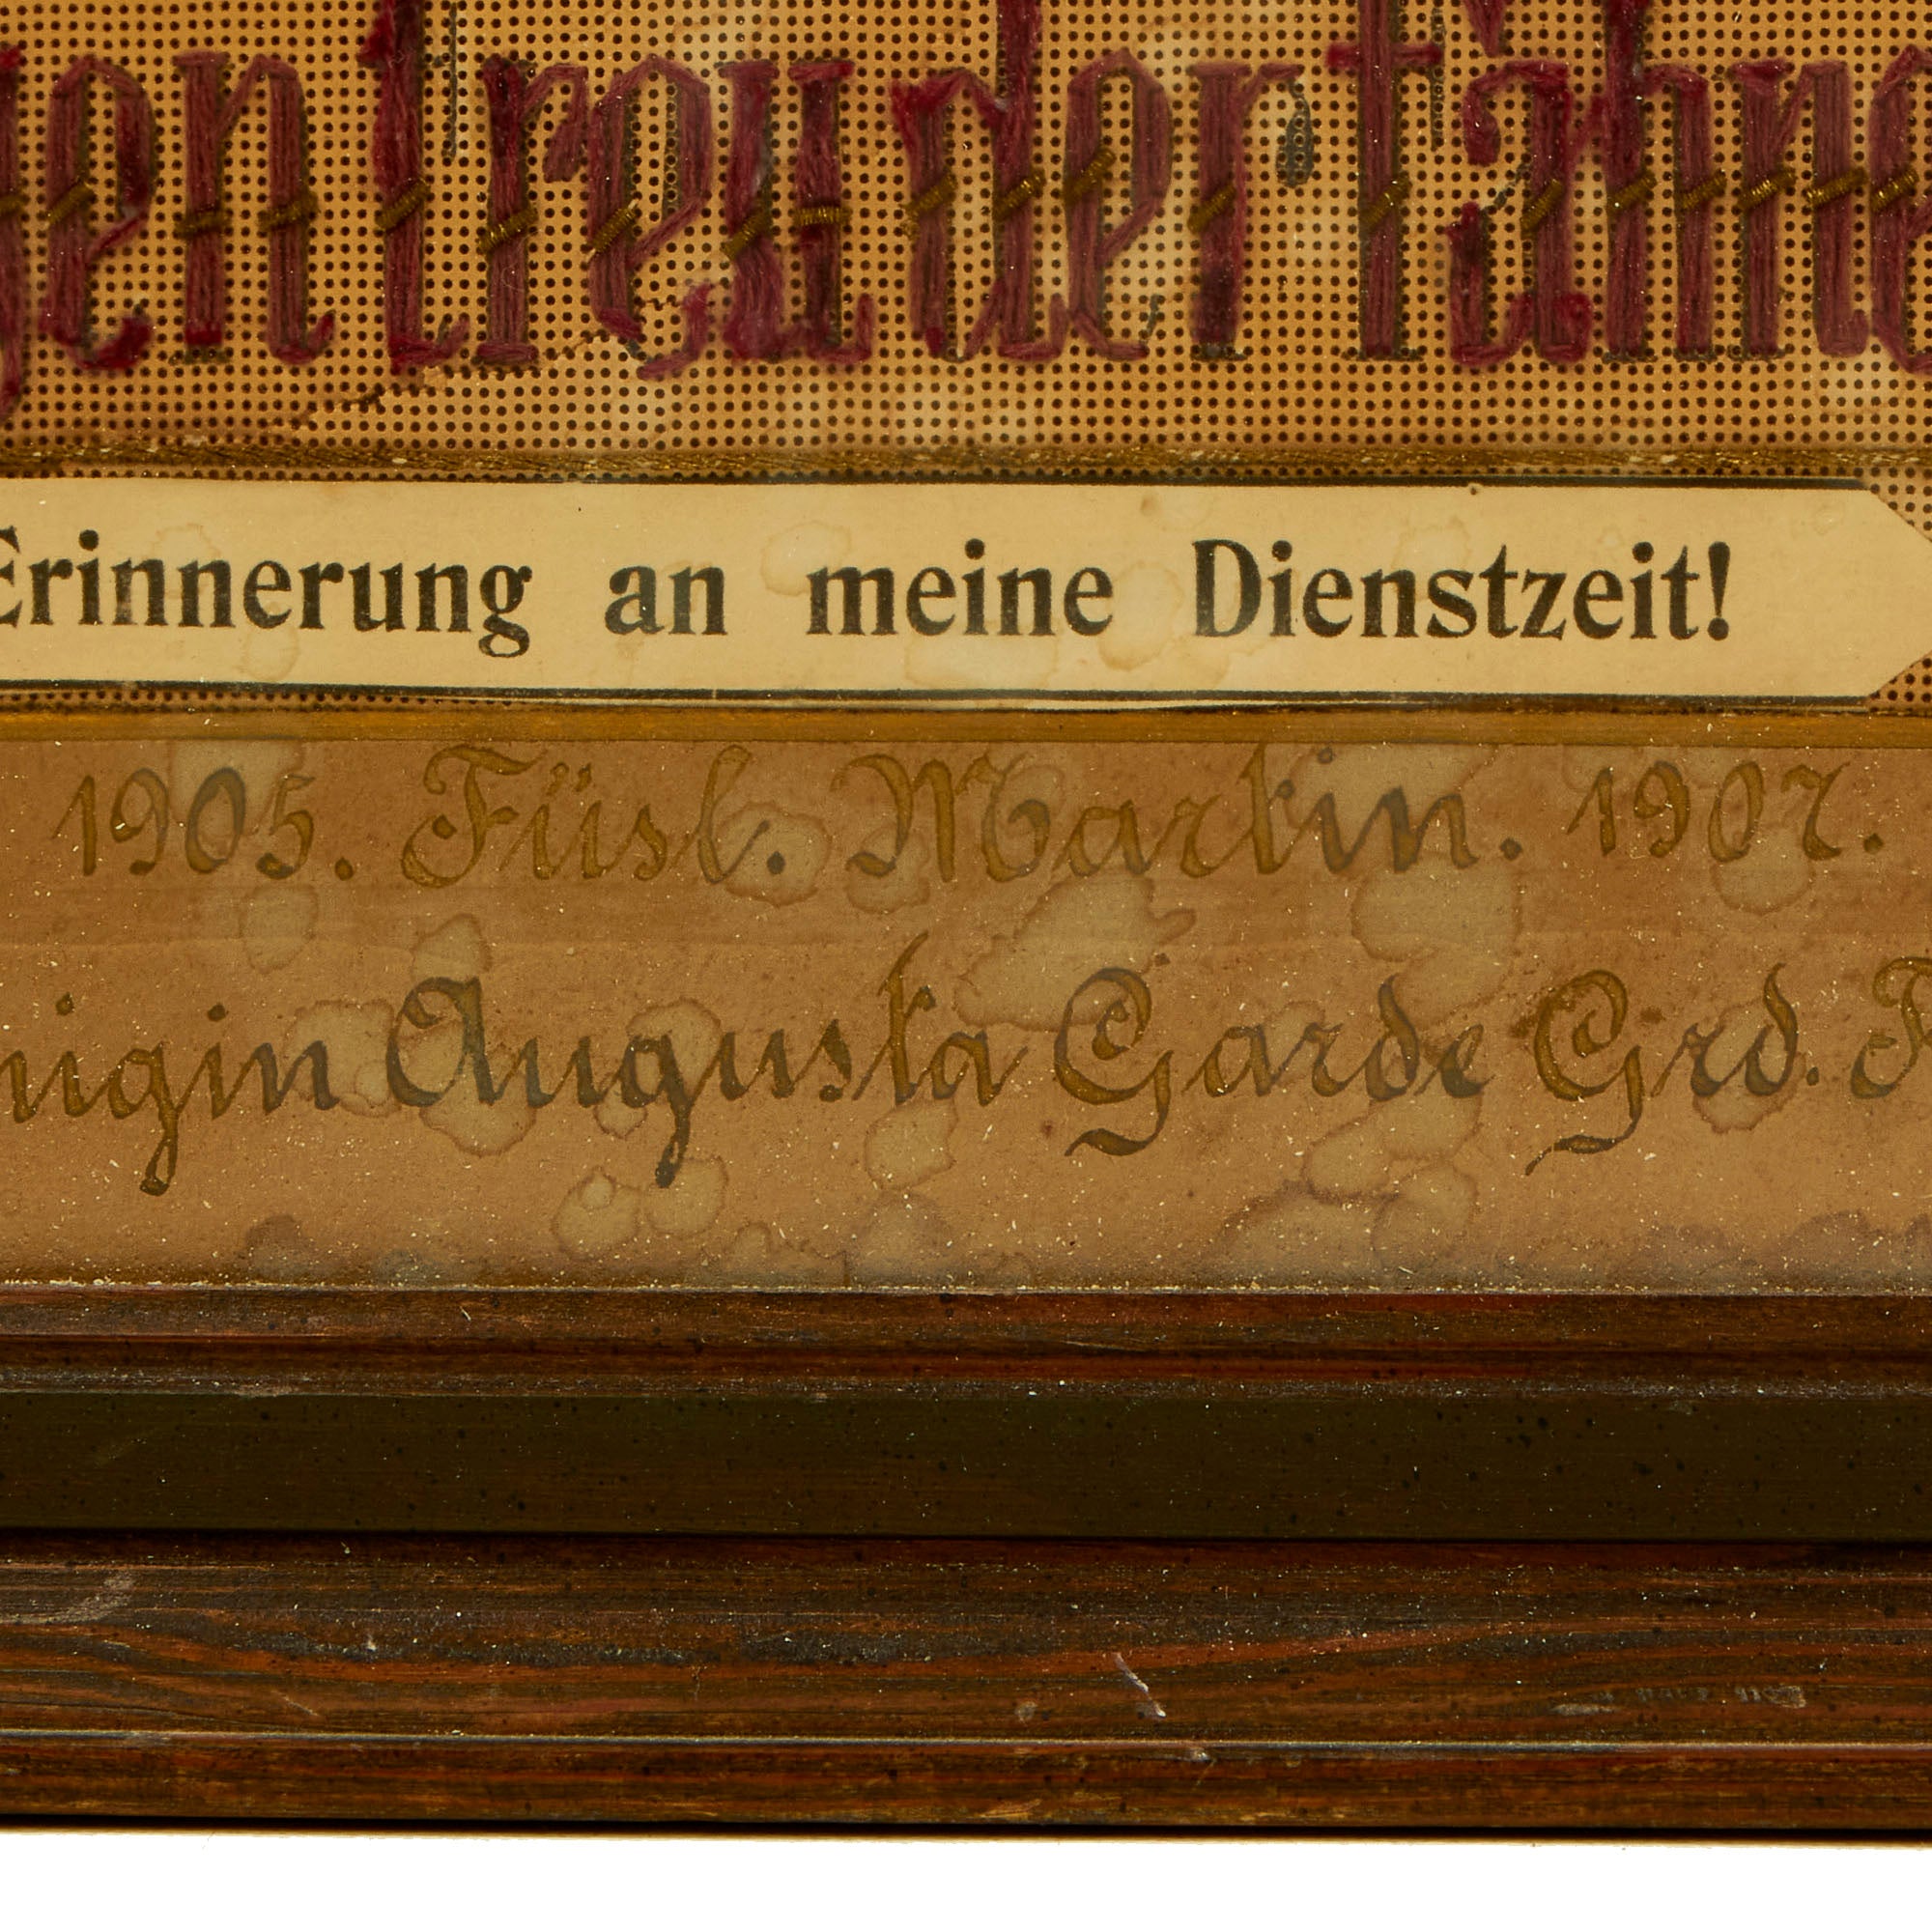 gen treu der Fahne
Erinnerung an meine Dienstzeit!
1905. Füsl. Martin. 1907.
nigin Augusta Garde Grd.